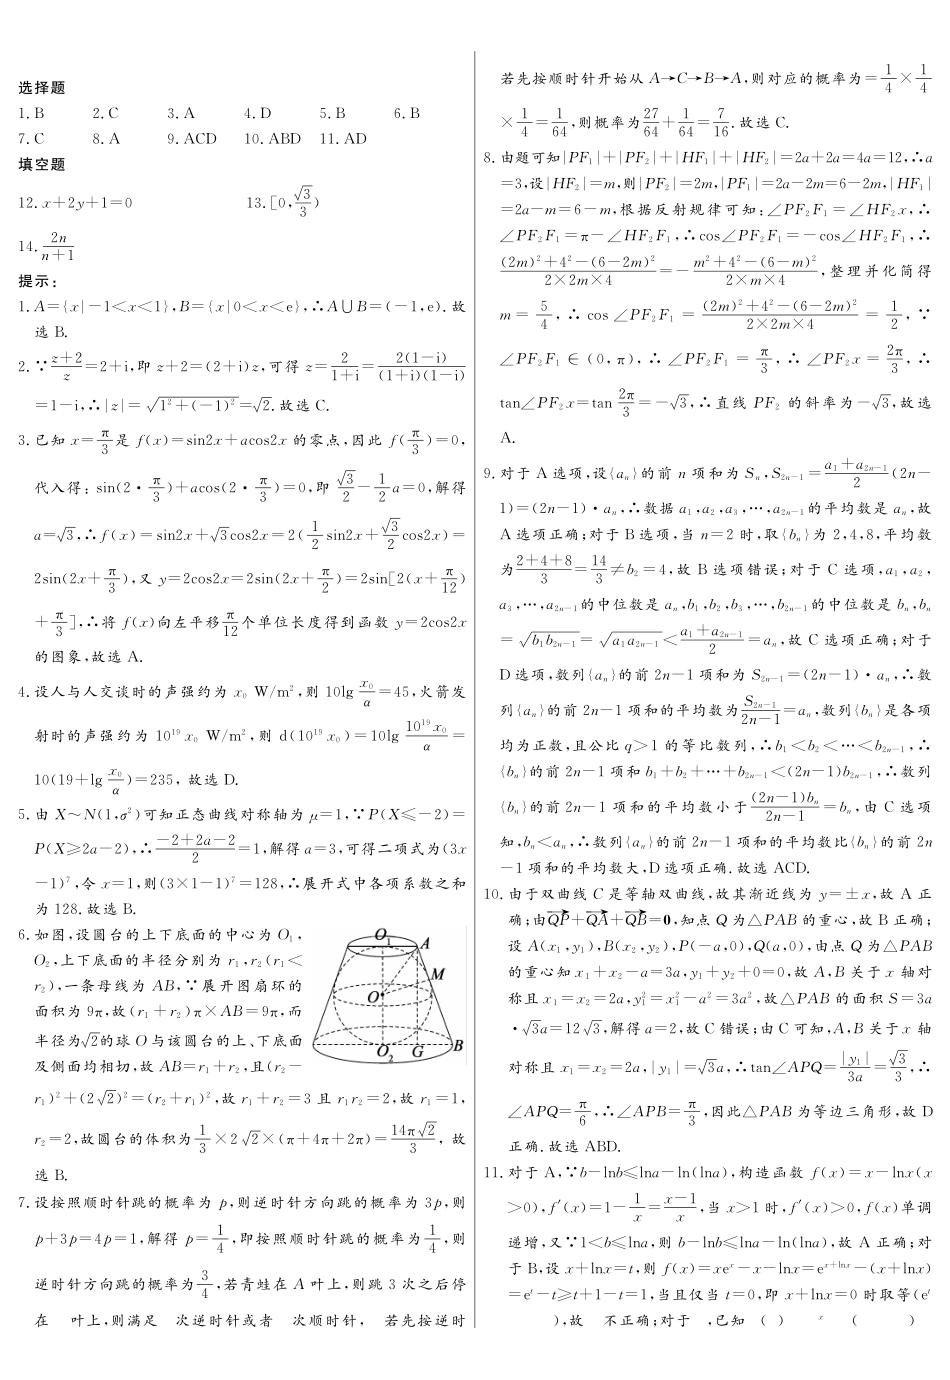 选择题
1. B 2. C 3. A 4. D 5. B 6. B
7. C 8. A 9. ACD 10. ABD 11. AD
填空题
12. x+2y+1=0 13. [0,√3/3)
14. 2n/(n+1)
提示:
1. A={x|-1<x<1},B={x|0<x<e},∴A∪B=(-1,e). 故
选 B.
2. ∵(z+2)/z=2+i,即 z+2=(2+i)z,可得 z=2/(1+i)=2(1-i)/((1+i)(1-i))
=1-i,∴|z|=√(1²+(-1)²)=√2. 故选 C.
3. 已知 x=π/3 是 f(x)=sin2x+acos2x 的零点,因此 f(π/3)=0,
代入得: sin(2·π/3)+acos(2·π/3)=0,即 √3/2-1/2a=0,解得
a=√3,∴f(x)=sin2x+√3cos2x=2(1/2sin2x+√3/2cos2x)=
2sin(2x+π/3),又 y=2cos2x=2sin(2x+π/2)=2sin[2(x+π/12)
+π/3],∴将 f(x)向左平移π/12个单位长度得到函数 y=2cos2x
的图象,故选 A.
4. 设人与人交谈时的声强约为 x₀ W/m²,则 10lg x₀/α=45,火箭发
射时的声强约为 10¹⁹x₀ W/m²,则 d(10¹⁹x₀)=10lg 10¹⁹x₀/α=
10(19+lg x₀/α)=235, 故选 D.
5. 由 X~N(1,σ²)可知正态曲线对称轴为 μ=1,∵P(X≤-2)=
P(X≥2a-2),∴(-2+2a-2)/2=1,解得 a=3,可得二项式为(3x
-1)⁷,令 x=1,则(3×1-1)⁷=128,∴展开式中各项系数之和
为 128. 故选 B.
6. 如图,设圆台的上下底面的中心为 O₁,
O₂,上下底面的半径分别为 r₁,r₂(r₁<
r₂),一条母线为 AB,∵展开图扇环的
面积为 9π,故(r₁+r₂)π×AB=9π,而
半径为√2的球 O 与该圆台的上、下底面
及侧面均相切,故 AB=r₁+r₂,且(r₂-
O₁ A
M
O
O₂ G B
r₁)²+(2√2)²=(r₂+r₁)²,故 r₁+r₂=3 且 r₁r₂=2,故 r₁=1,
r₂=2,故圆台的体积为 1/3×2√2×(π+4π+2π)=14π√2/3, 故
选 B.
7. 设按照顺时针跳的概率为 p,则逆时针方向跳的概率为 3p,则
p+3p=4p=1,解得 p=1/4,即按照顺时针跳的概率为 1/4,则
逆时针方向跳的概率为 3/4,若青蛙在 A 叶上,则跳 3 次之后停
在 叶上,则满足 次逆时针或者 次顺时针, 若先按逆时
若先按顺时针开始从 A→C→B→A,则对应的概率为=1/4×1/4
×1/4=1/64,则概率为27/64+1/64=7/16. 故选 C.
8. 由题可知|PF₁|+|PF₂|+|HF₁|+|HF₂|=2a+2a=4a=12,∴a
=3,设|HF₂|=m,则|PF₂|=2m,|PF₁|=2a-2m=6-2m,|HF₁|
=2a-m=6-m,根据反射规律可知:∠PF₂F₁=∠HF₂x,∴
∠PF₂F₁=π-∠HF₂F₁,∴cos∠PF₂F₁=-cos∠HF₂F₁,∴
((2m)²+4²-(6-2m)²)/(2×2m×4)=-(m²+4²-(6-m)²)/(2×m×4),整理并化简得
m=5/4,∴cos∠PF₂F₁=((2m)²+4²-(6-2m)²)/(2×2m×4)=1/2,∵
∠PF₂F₁∈(0,π),∴∠PF₂F₁=π/3,∴∠PF₂x=2π/3,∴
tan∠PF₂x=tan 2π/3=-√3,∴直线 PF₂ 的斜率为-√3,故选
A.
9. 对于 A 选项,设{aₙ}的前 n 项和为 Sₙ,S₂ₙ₋₁=(a₁+a₂ₙ₋₁)/2(2n-
1)=(2n-1)·aₙ,∴数据 a₁,a₂,a₃,…,a₂ₙ₋₁的平均数是 aₙ,故
A 选项正确;对于 B 选项,当 n=2 时,取{bₙ}为 2,4,8,平均数
为(2+4+8)/3=14/3≠b₂=4,故 B 选项错误;对于 C 选项,a₁,a₂,
a₃,…,a₂ₙ₋₁的中位数是 aₙ,b₁,b₂,b₃,…,b₂ₙ₋₁的中位数是 bₙ,bₙ
=√(b₁b₂ₙ₋₁)=√(a₁a₂ₙ₋₁)<(a₁+a₂ₙ₋₁)/2=aₙ,故 C 选项正确;对于
D 选项,数列{aₙ}的前 2n-1 项和为 S₂ₙ₋₁=(2n-1)·aₙ,∴数
列{aₙ}的前 2n-1 项和的平均数为S₂ₙ₋₁/(2n-1)=aₙ,数列{bₙ}是各项
均为正数,且公比 q>1 的等比数列,∴b₁<b₂<…<b₂ₙ₋₁,∴
{bₙ}的前 2n-1 项和 b₁+b₂+…+b₂ₙ₋₁<(2n-1)b₂ₙ₋₁,∴数列
{bₙ}的前 2n-1 项和的平均数小于 (2n-1)bₙ/(2n-1)=bₙ,由 C 选项
知,bₙ<aₙ,∴数列{aₙ}的前 2n-1 项和的平均数比{bₙ}的前 2n
-1 项和的平均数大,D 选项正确. 故选 ACD.
10. 由于双曲线 C 是等轴双曲线,故其渐近线为 y=±x,故 A 正
确;由QP→+QA→+QB→=0,知点 Q 为△PAB 的重心,故 B 正确;
设 A(x₁,y₁),B(x₂,y₂),P(-a,0),Q(a,0),由点 Q 为△PAB
的重心知 x₁+x₂-a=3a,y₁+y₂+0=0,故 A,B 关于 x 轴对
称且 x₁=x₂=2a,y₁²=x₁²-a²=3a²,故△PAB 的面积 S=3a
·√3a=12√3,解得 a=2,故 C 错误;由 C 可知,A,B 关于 x 轴
对称且 x₁=x₂=2a,|y₁|=√3a,∴tan∠APQ=|y₁|/3a=√3/3,∴
∠APQ=π/6,∴∠APB=π/3,因此△PAB 为等边三角形,故 D
正确. 故选 ABD.
11. 对于 A,∵b-lnb≤lna-ln(lna),构造函数 f(x)=x-lnx(x
>0),f′(x)=1-1/x=(x-1)/x,当 x>1 时,f′(x)>0,f(x)单调
递增,又∵1<b≤lna,则 b-lnb≤lna-ln(lna),故 A 正确;对
于 B,设 x+lnx=t,则 f(x)=xeˣ-x-lnx=eˣ⁺ˡⁿˣ-(x+lnx)
=eᵗ-t≥t+1-t=1,当且仅当 t=0,即 x+lnx=0 时取等(eᵗ
),故 不正确;对于 ,已知 ( ) ˣ ( )